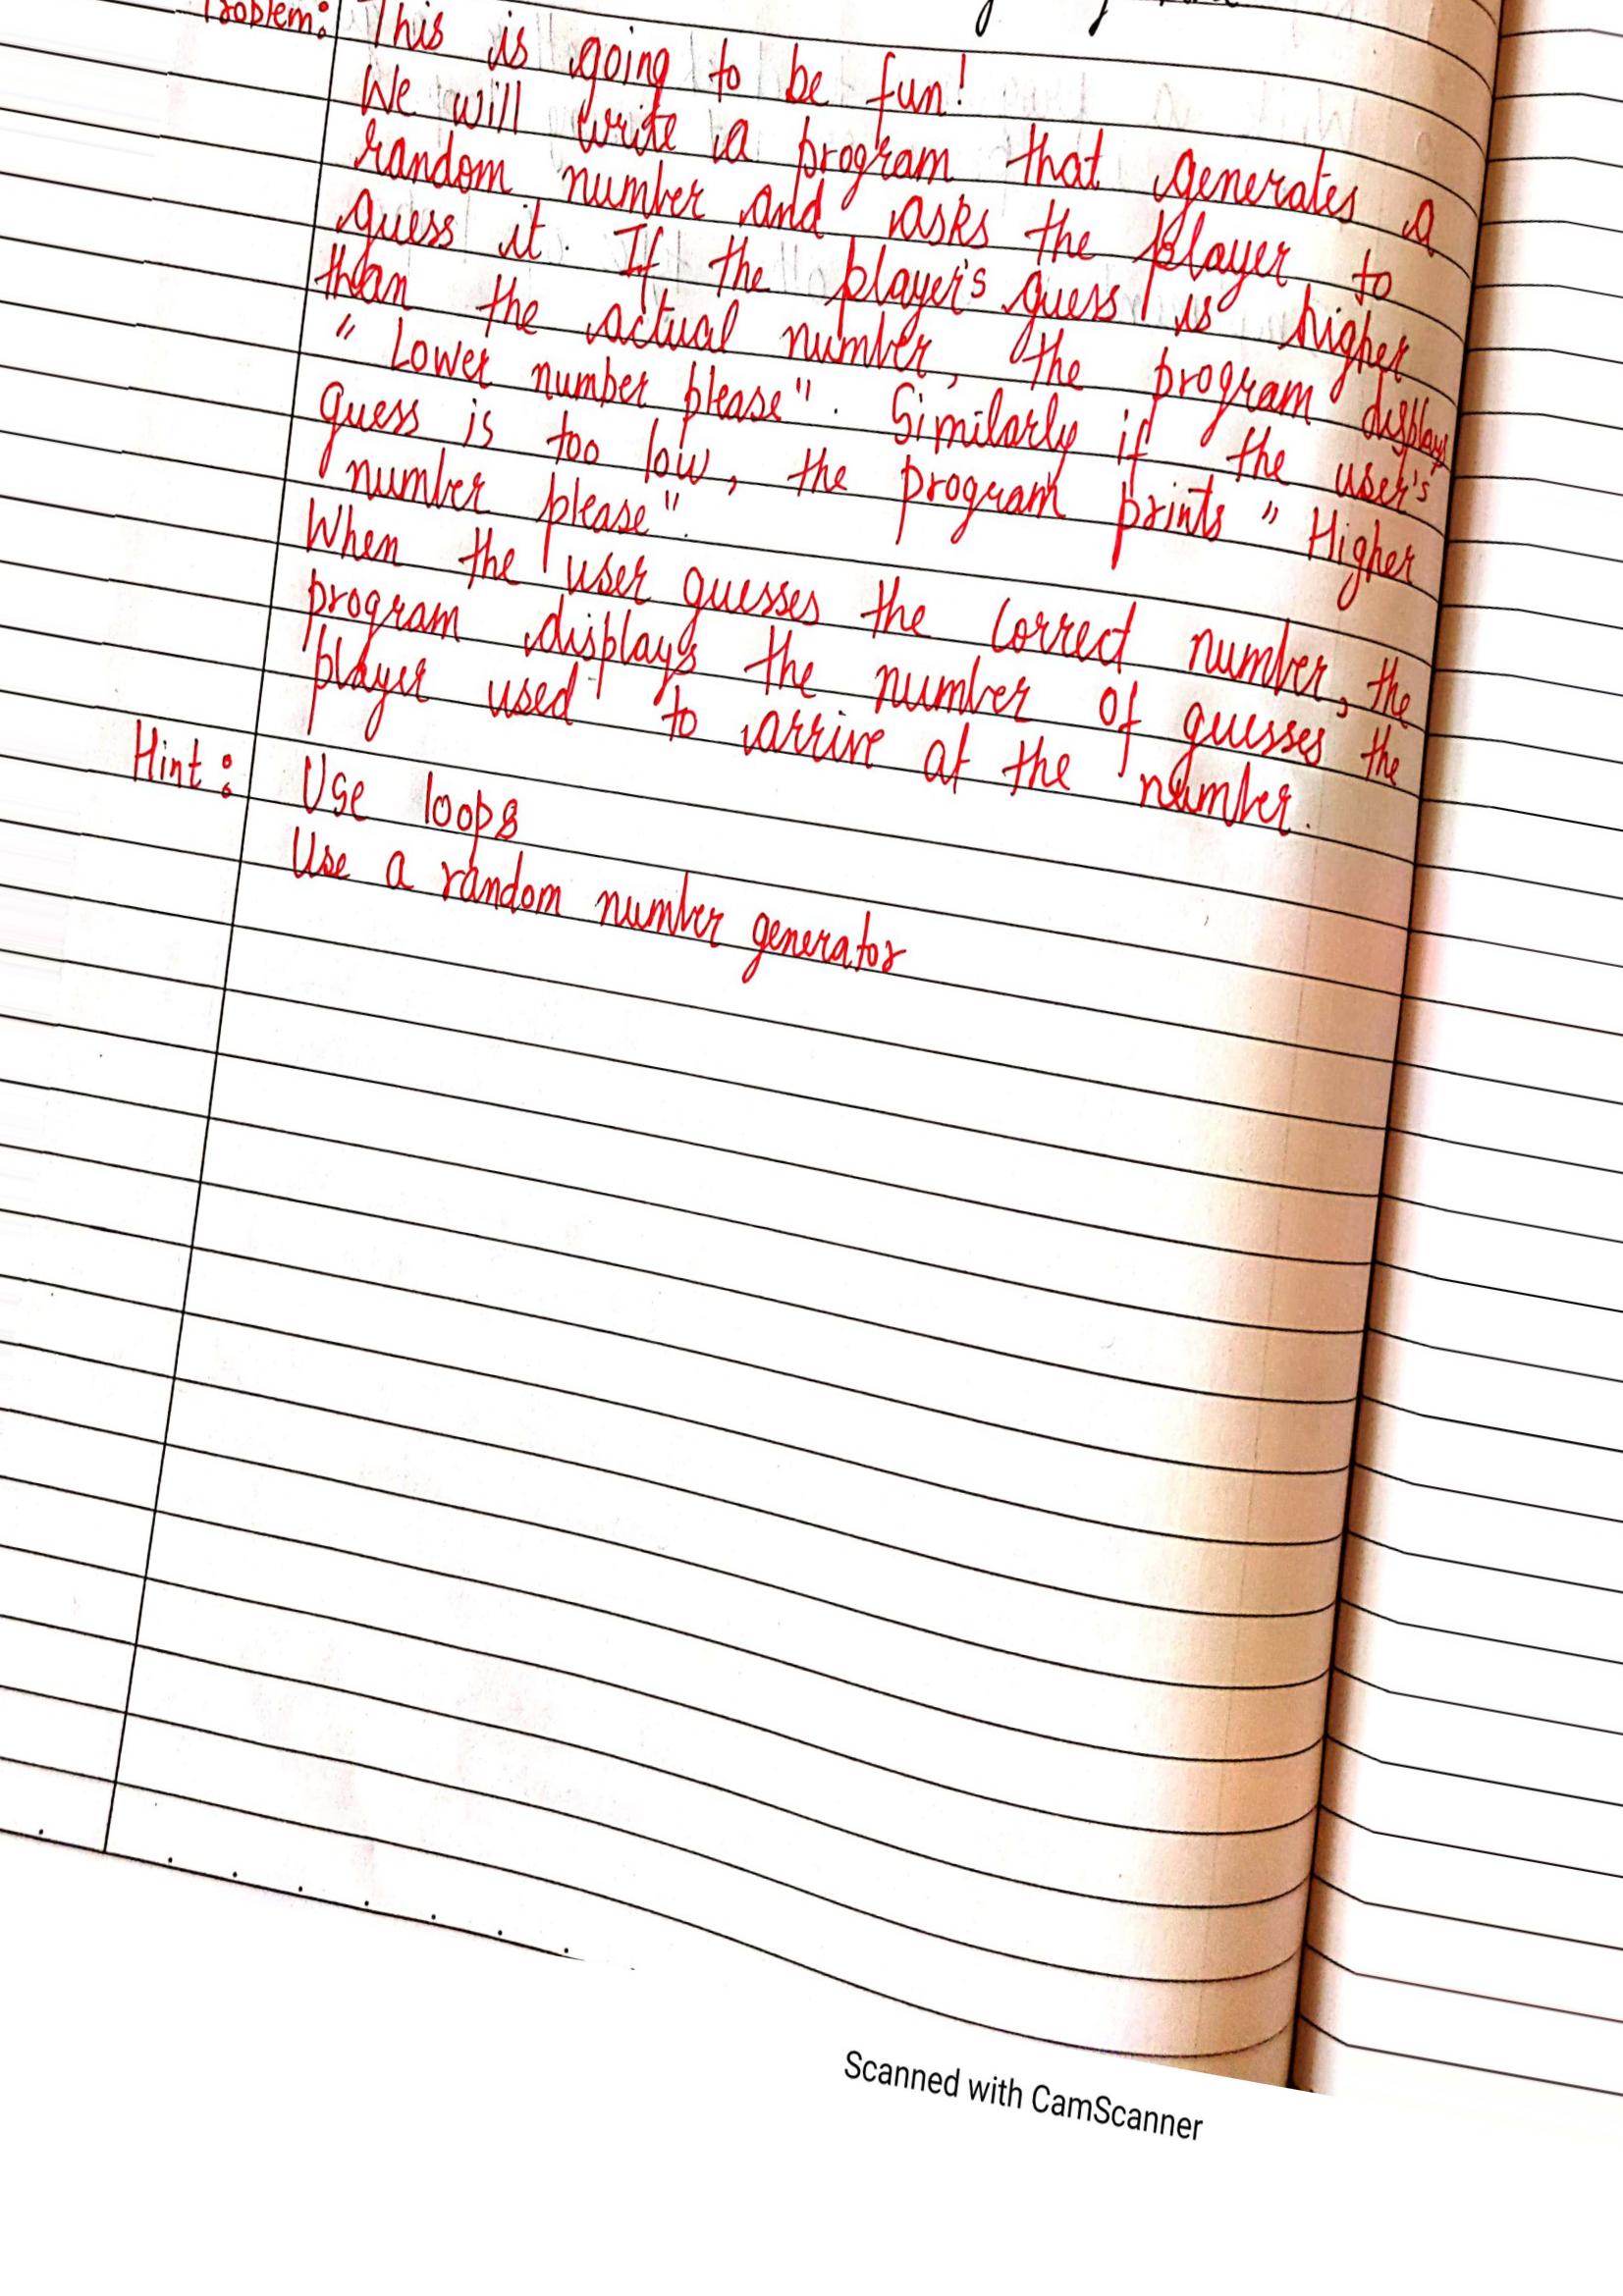 Problem: This is going to be fun!
We will write a program that generates a
random number and asks the player to
guess it. If the player's guess is higher
than the actual number, the program displays
" Lower number please". Similarly if the user's
guess is too low, the program prints " Higher
number please".
When the user guesses the correct number, the
program displays the number of guesses the
player used to arrive at the number.
Hint: Use loops
Use a random number generator
Scanned with CamScanner